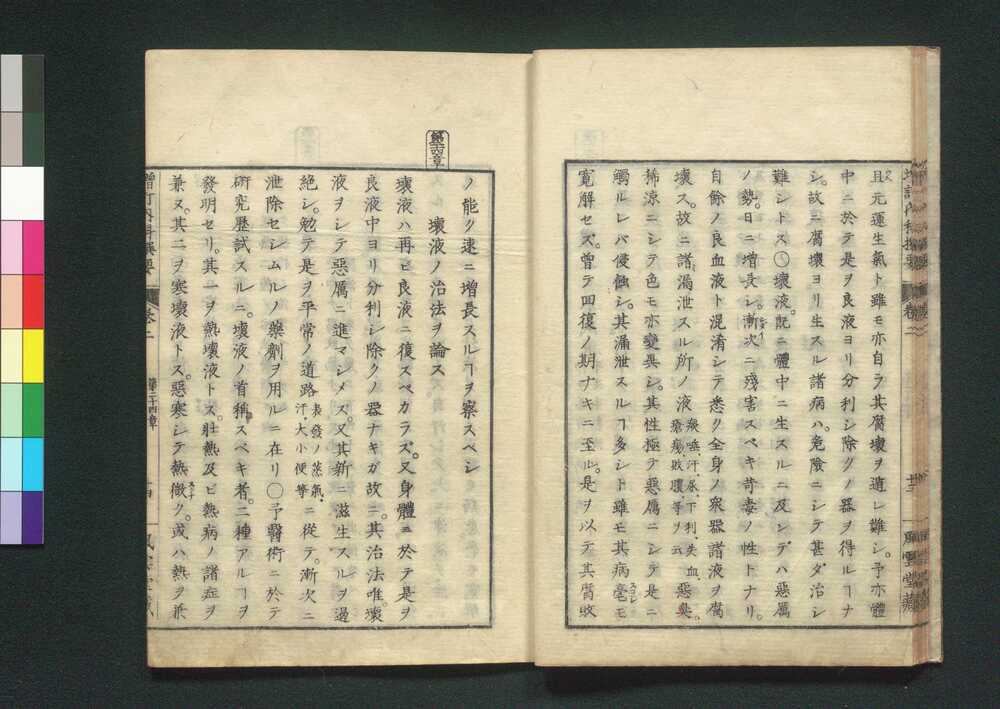 且元運生氣ト雖モ亦自ラ其腐壞ヲ遺レ難シ。予亦體
中ニ於テ是ヲ良液ヨリ分利シ除クノ器ヲ得ルヿナ
シ。故ニ腐壞ヨリ生スル諸病ハ。危險ニシテ甚ダ治シ
難シトス〇壞液。既ニ體中ニ生スルニ及ンデハ惡厲
ノ勢。日ニ増長シ。漸次ニ殘害スベキ苛毒ノ性トナリ。
自餘ノ良血液ト混淆シテ悉ク全身ノ衆器諸液ヲ腐
壞ス。故ニ諸漏泄スル所ノ液 痰唾、汗、尿、下利、失血、瘡瘍、敗膿等ヲ云 惡臭。
稀涼ニシテ色モ亦變異シ。其性極テ惡厲ニシテ是ニ
觸ルレバ侵蝕シ。其漏泄スルヿ多シト雖モ其病毫モ
寛解セズ。曾テ回復ノ期ナキニ至ル。是ヲ以テ其腐敗
増訂内科撰要
卷二
風雲堂藏
第三十四章
ノ能ク速ニ増長スルヿヲ察スベシ
壞液ノ治法ヲ論ス
壞液ハ再ビ良液ニ復スベカラズ。又身體ニ於テ是ヲ
良液中ヨリ分利シ除クノ器ナキガ故ニ。其治法唯。壞
液ヲシテ惡厲ニ進マシメス。又其新ニ滋生スルヲ遏
絶シ。勉テ是ヲ平常ノ道路 表發ノ蒸氣、汗、大小便等 ニ從テ。漸次ニ
泄除セシムルノ藥劑ヲ用ルニ在リ〇予醫術ニ於テ
研究歷試スルニ。壞液ノ首稱スベキ者。二種アルヿヲ
發明セリ。其一ヲ熱壞液トス。壯熱及ビ熱病ノ諸症ヲ
兼ヌ。其二ヲ寒壞液トス。惡寒シテ熱微ク。或ハ熱ヲ兼
第三十四章